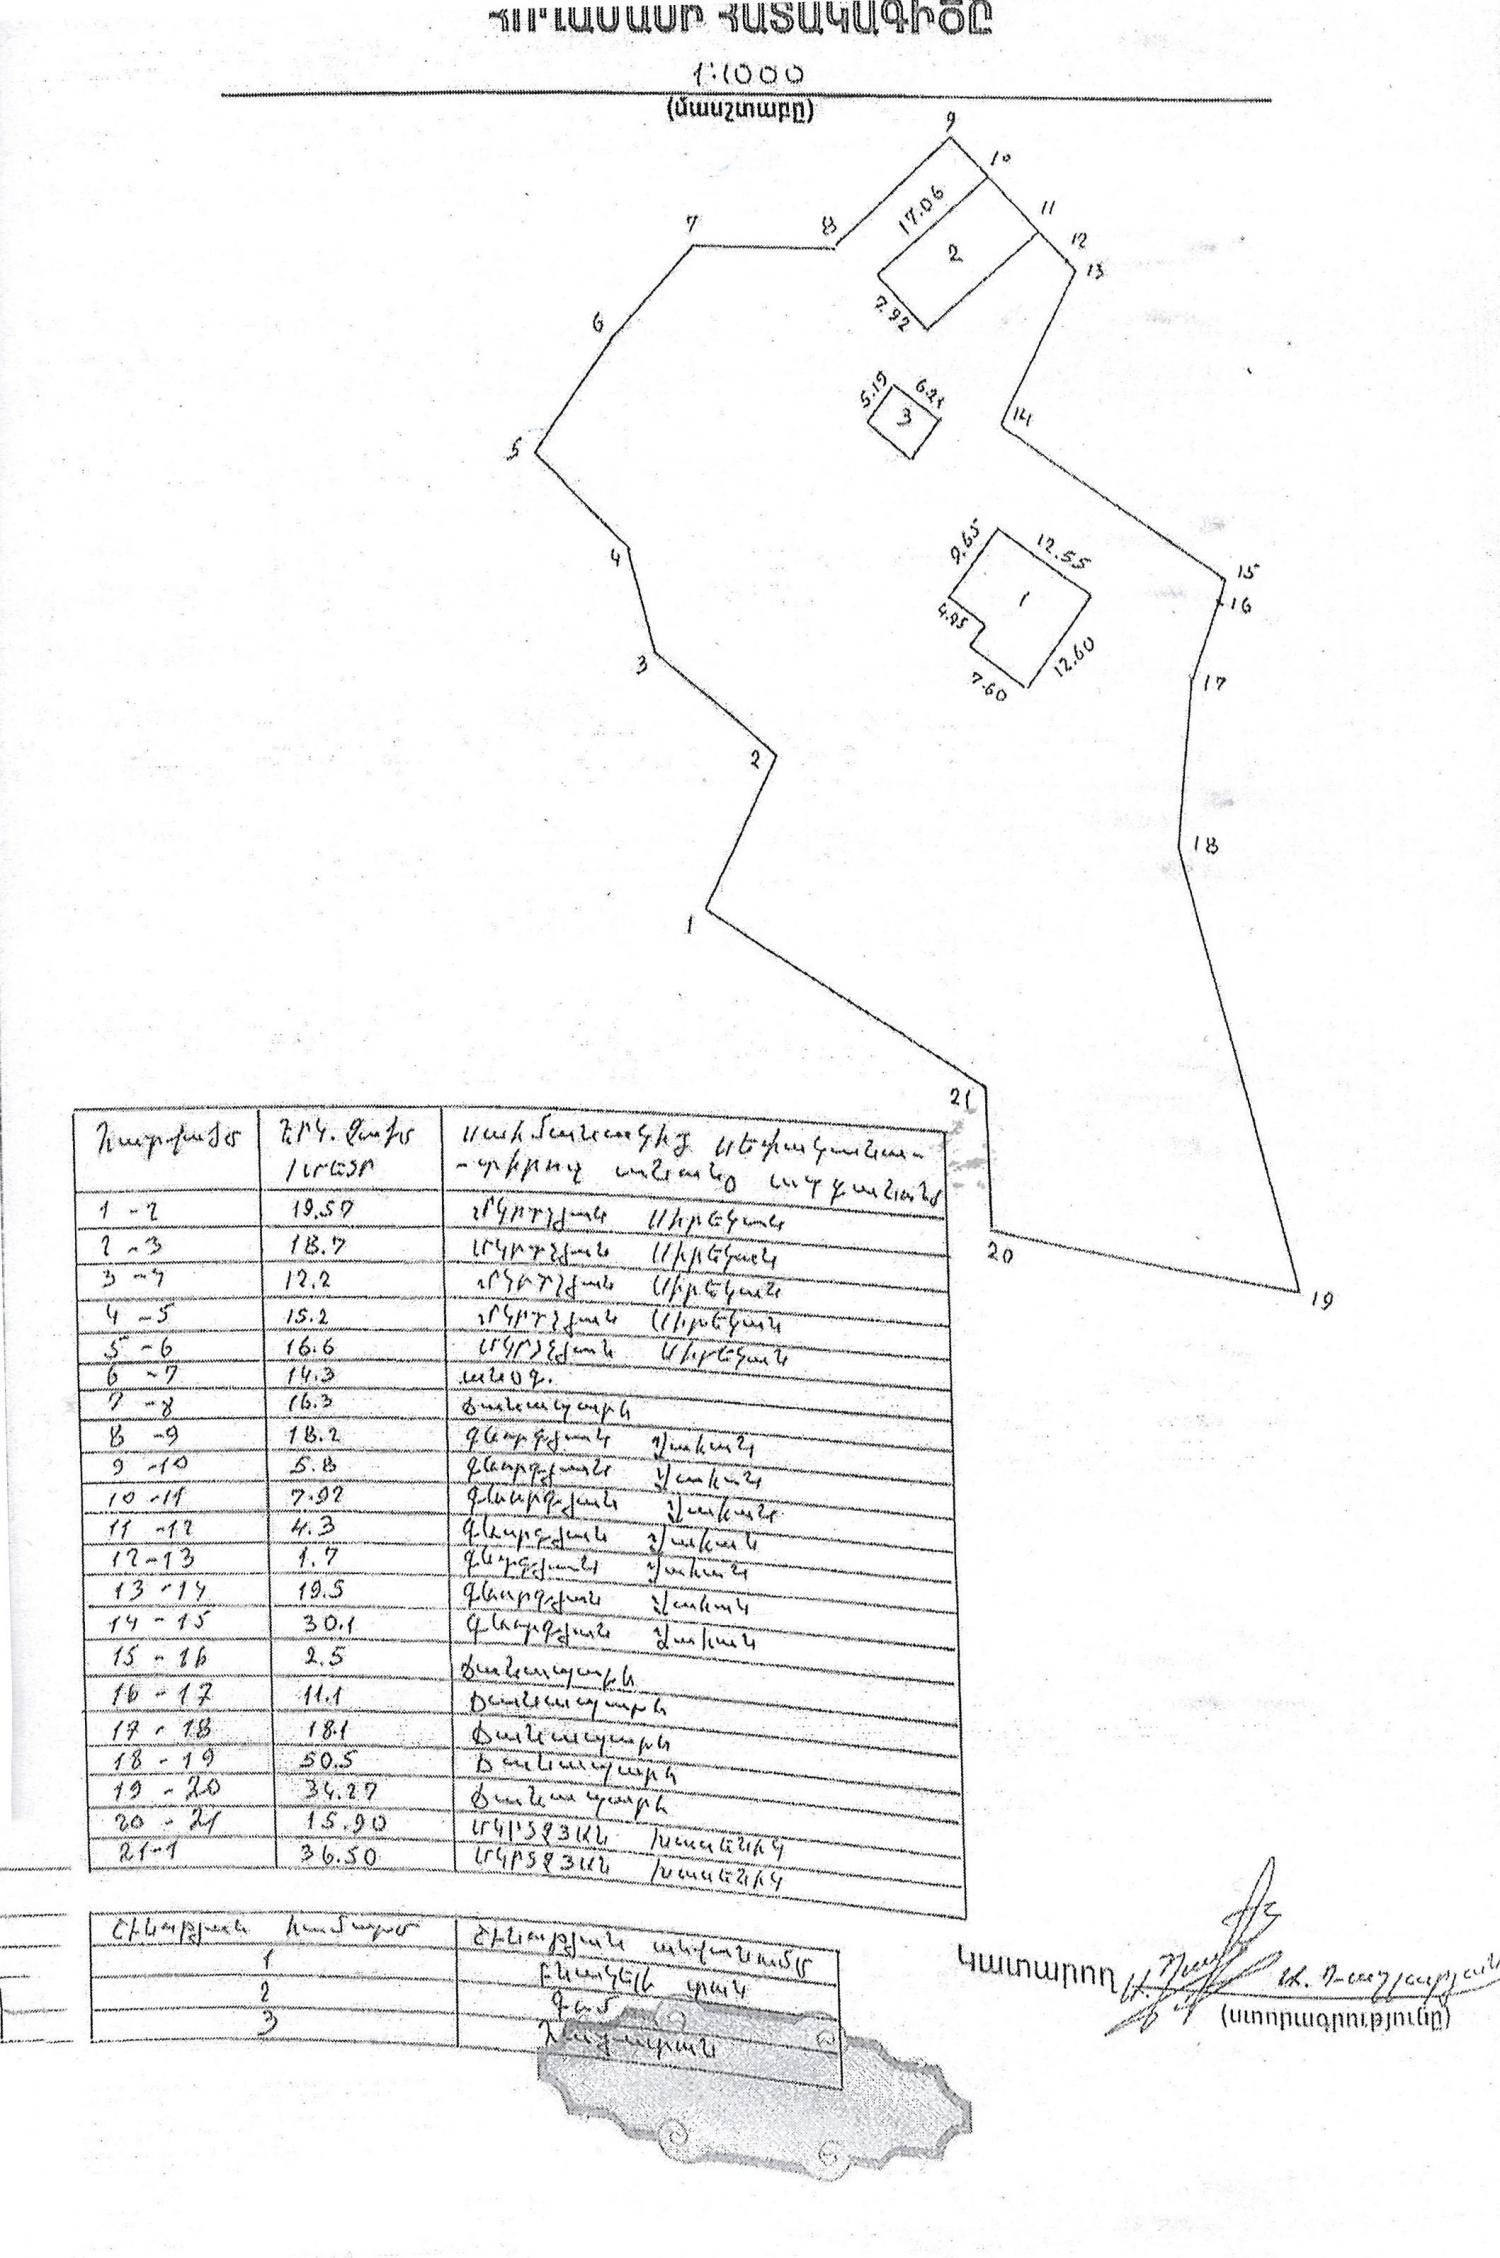 ՀՈՂԱՄԱՍԻ ՀԱՏԱԿԱԳԻԾԸ
1:1000
(մասշտաբը)
9
10
11
12
13
7
8
17.06
2
7.92
6
5.19
6.21
3
14
5
4
9.65
12.55
1
4.95
7.60
12.60
15
16
17
3
2
18
1
21
20
19
1-2 19.57 Մկրտչյան Սիրեկան
2-3 18.7 Մկրտչյան Սիրեկան
3-4 12.2 Մկրտչյան Սիրեկան
4-5 15.2 Մկրտչյան Սիրեկան
5-6 16.6 Մկրտչյան Սիրեկան
6-7 14.3 անօգ.
7-8 16.3 ճանապարհ
8-9 18.2 Գևորգյան Վահան
9-10 5.8 Գևորգյան Վահան
10-11 7.92 Գևորգյան Վահան
11-12 4.3 Գևորգյան Վահան
12-13 1.7 Գևորգյան Վահան
13-14 19.5 Գևորգյան Վահան
14-15 30.1 Գևորգյան Վահան
15-16 2.5 ճանապարհ
16-17 11.1 ճանապարհ
17-18 18.1 ճանապարհ
18-19 50.5 ճանապարհ
19-20 34.27 ճանապարհ
20-21 15.90 ՄԿՐՏՉՅԱՆ
21-1 36.50 ՄԿՐՏՉՅԱՆ
Շինության համարը Շինության անվանումը
1 բնակելի տան
2 գոմ
3
Կատարող
(ստորագրությունը)